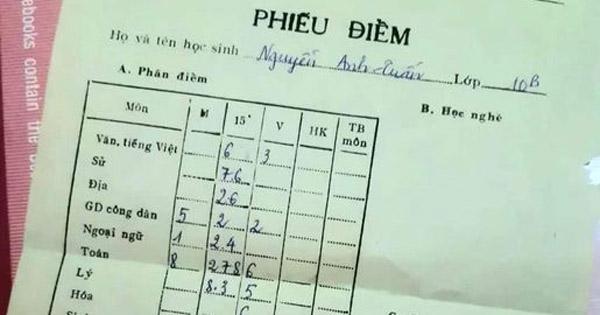 ebooks contain the
PHIẾU ĐIỂM
Họ và tên học sinh Nguyễn Anh Tuấn Lớp 10B
A. Phần điểm
B. Học nghề
Môn M 15' V HK TB môn
Văn, tiếng Việt 6 3
Sử 7.6
Địa 2.6
GD công dân 5 2 2
Ngoại ngữ 1 2.4
Toán 8 2 7 8 6
Lý 8.3 5
Hóa